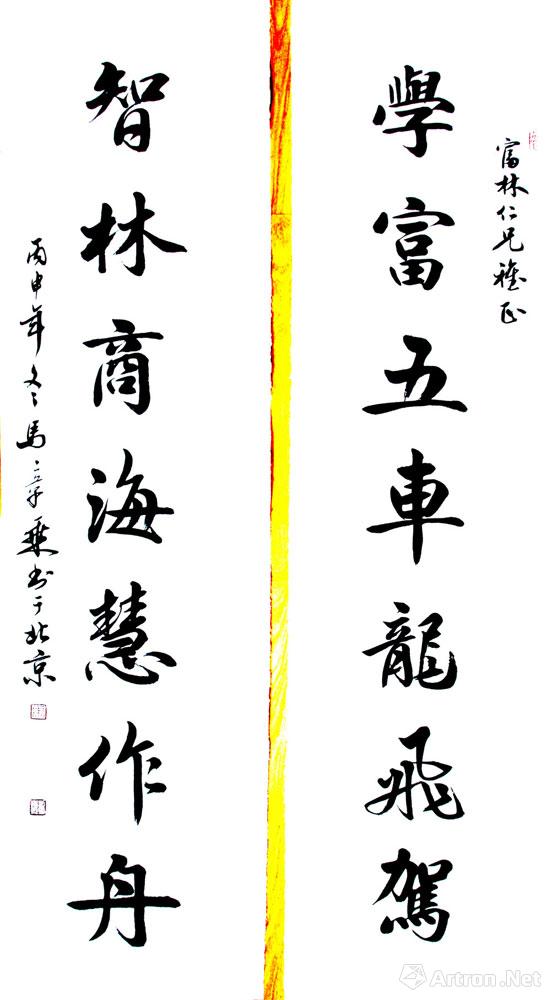 富林仁兄雅正
學富五車龍飛駕
智林商海慧作舟
丙申年冬馬
書于北京
Artron.Net